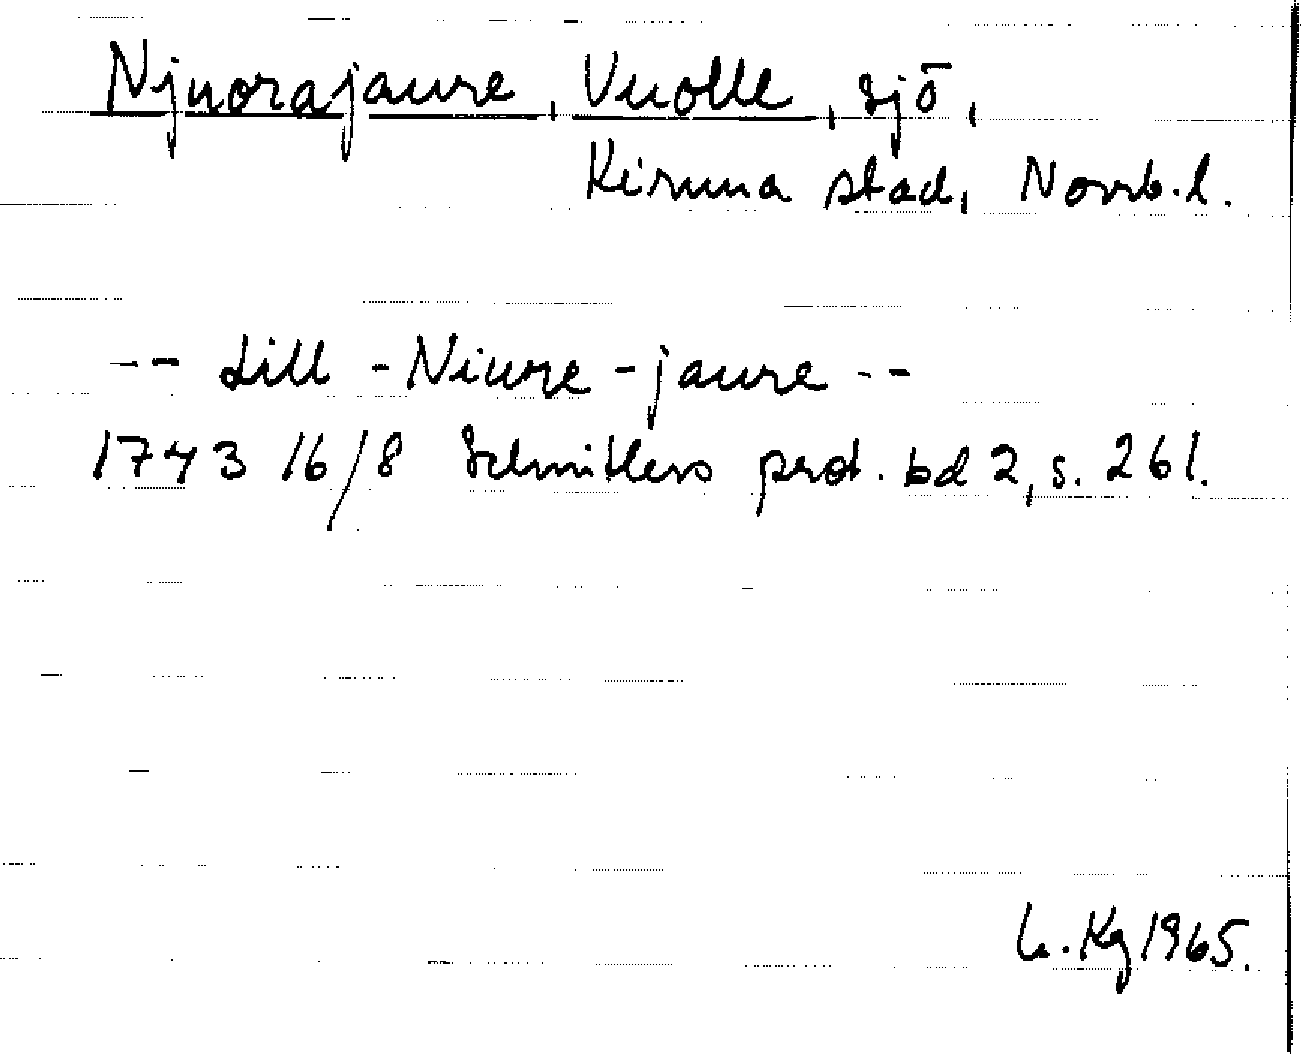 Njuorajaure, Vuolle, sjö,
Kiruna stad, Norrb. l.
-- Lill-Niure-jaure --
1743 16/8 Schnitlers prot. bd 2, s. 261.
L. Kg 1965.